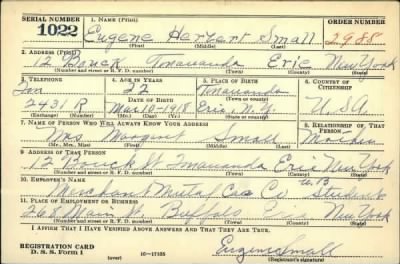 SERIAL NUMBER 1. NAME (Print) ORDER NUMBER
1022 Eugene Herbert Small 2988
(First) (Middle) (Last)
2. ADDRESS (Print)
12 Bouck Tonawanda Erie New York
(Number and street or R. F. D. number) (Town) (County) (State)
3. TELEPHONE 4. AGE IN YEARS 5. PLACE OF BIRTH 6. COUNTRY OF CITIZENSHIP
Ton 22 Tonawanda
DATE OF BIRTH (Town or county)
2431 R Mar 10-1918 Erie, N.Y. U.S.A
(Exchange) (Number) (Mo.) (Day) (Yr.) (State or country)
7. NAME OF PERSON WHO WILL ALWAYS KNOW YOUR ADDRESS 8. RELATIONSHIP OF THAT PERSON
Mrs Small Mother
(Mr., Mrs., Miss) (First) (Middle) (Last)
9. ADDRESS OF THAT PERSON
12 Bouck St Tonawanda Erie New York
(Number and street or R. F. D. number) (Town) (County) (State)
10. EMPLOYER'S NAME U.B.
Merchant Mutual Cas Co Student
11. PLACE OF EMPLOYMENT OR BUSINESS
268 Main St Buffalo Erie New York
(Number and street or R. F. D. number) (Town) (County) (State)
I AFFIRM THAT I HAVE VERIFIED ABOVE ANSWERS AND THAT THEY ARE TRUE.
REGISTRATION CARD
D. S. S. Form 1 (over) 16-17105 Eugene Small
(Registrant's signature)